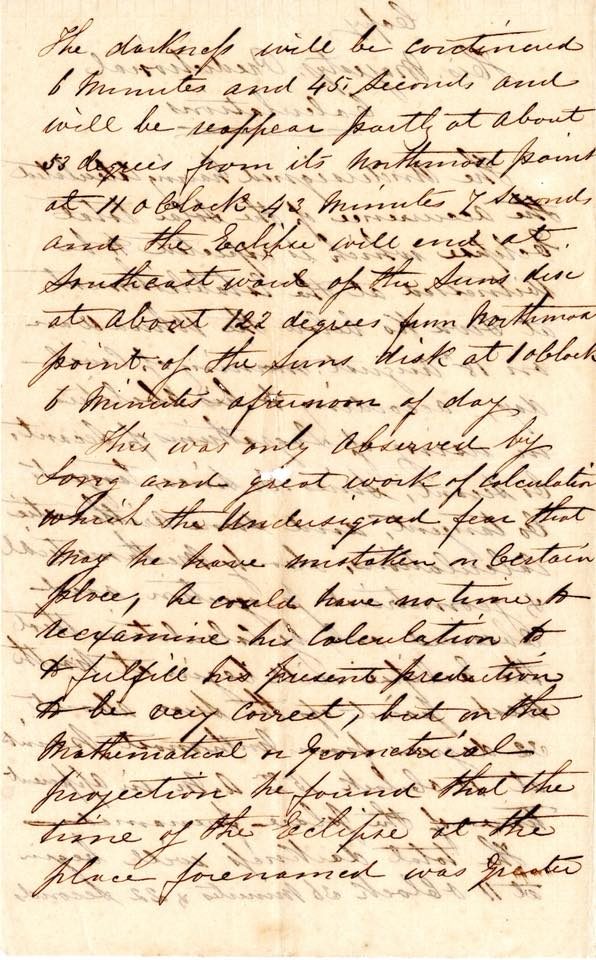 The darkness will be continued
6 Minutes and 45. Seconds and
will be reappear partly at about
53 degrees from its Northmost point
at 11 oClock 43 Minutes 7 Seconds
and the Eclipse will end at
Southeast ward of the Suns disc
at about 122 degrees from Northmost
point of the Suns disk at 1 oClock
6 Minutes afternoon of day
This was only observed by
Long and great work of Calculation
which the Undersigned fear that
may he have mistaken on Certain
place, he could have no time to
reexamine his Calculation to
to fulfill his present prediction
to be very Correct, but on the
Mathematical or Geometrical
projection he found that the
time of the Eclipse at the
place forenamed was Greater